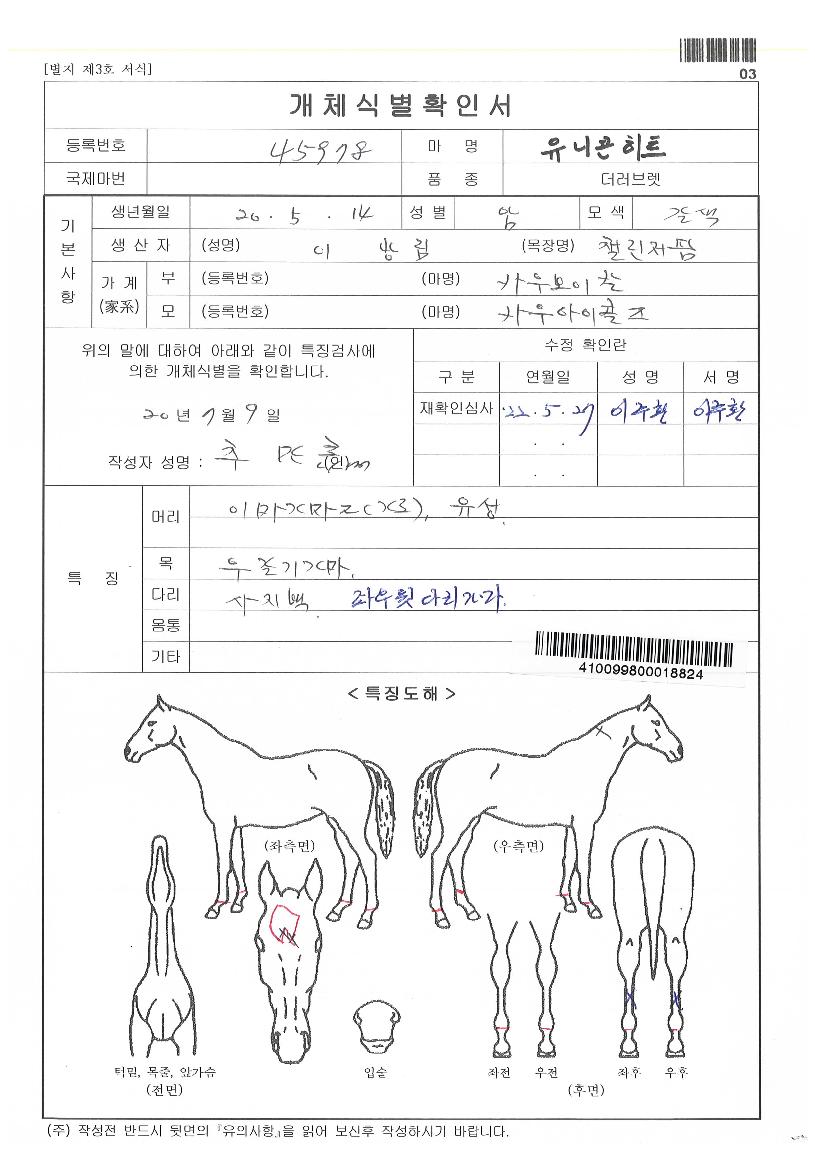 03
[별지 제3호 서식]
개체식별확인서
등록번호 45978 마 명 유니콘히트
국제마번 품 종 더러브렛
기본사항
생년월일 20 . 5 . 14 성 별 암 모 색 갈색
생 산 자 (성명) 이 (목장명) 챌린저팜
가 계 (家系) 부 (등록번호) (마명)
모 (등록번호) (마명)
위의 말에 대하여 아래와 같이 특징검사에
의한 개체식별을 확인합니다.
20 년 7 월 9 일
작성자 성명 : (인)
수정 확인란
구 분 연월일 성 명 서 명
재확인심사 '22 . 5 . 27 이주환 이주환
. .
. .
특 징
머리 유성
목
다리 사지백
몸통
기타
410099800018824
< 특징도해 >
(좌측면) (우측면)
턱밑, 목줄, 앞가슴 입술 좌전 우전 좌후 우후
(전면) (후면)
(주) 작성전 반드시 뒷면의 『유의사항』을 읽어 보신후 작성하시기 바랍니다.